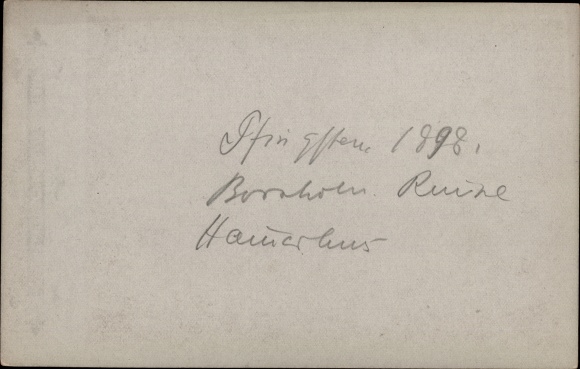 Pfingsten 1898.
Bornholm. Ruine
Hamershus